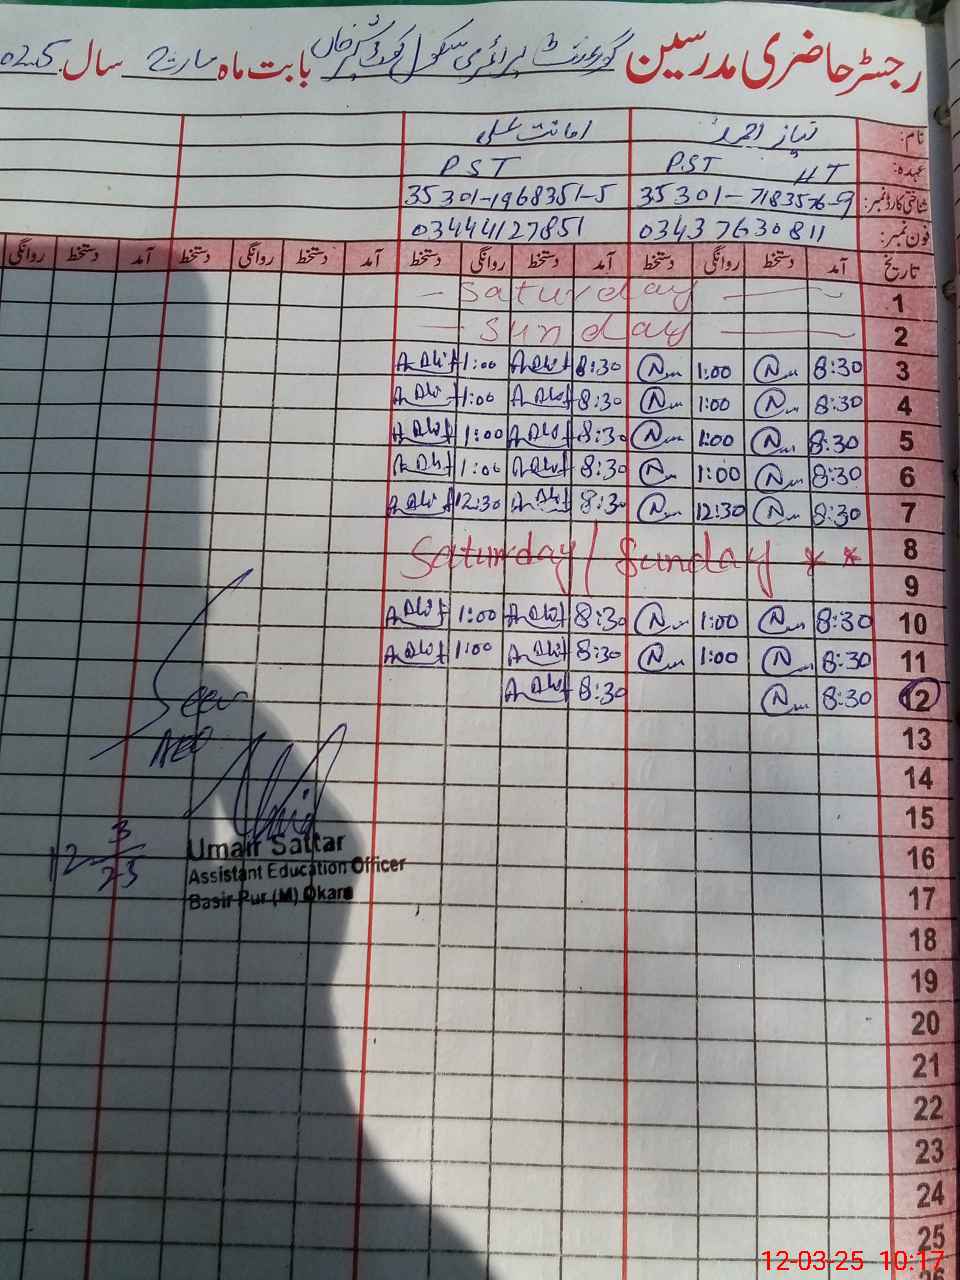 رجسٹر حاضری مدرسین گورنمنٹ پرائمری سکول کوٹ شیر خاں بابت ماہ مارچ سال 025
نام: نیاز احمد امانت علی
عہدہ: PST HT PST
شناختی کارڈ نمبر: 35301-7183576-9 35301-1968351-5
فون نمبر: 03437630811 03444127851
تاریخ آمد دستخط روانگی دستخط آمد دستخط روانگی دستخط آمد دستخط روانگی دستخط آمد دستخط روانگی
1 Saturday
2 Sunday
3 8:30 1:00 8:30 1:00
4 8:30 1:00 8:30 1:00
5 8:30 1:00 8:30 1:00
6 8:30 1:00 8:30 1:00
7 8:30 12:30 8:30 12:30
8 Saturday / Sunday * *
9
10 8:30 1:00 8:30 1:00
11 8:30 1:00 8:30 1:00
12 8:30 8:30
13
14
15
16
17
18
19
20
21
22
23
24
25
26
Seen
AEO
12-3/25
Umair Sattar
Assistant Education Officer
Basir Pur (M) Okara
12-03-25 10:17